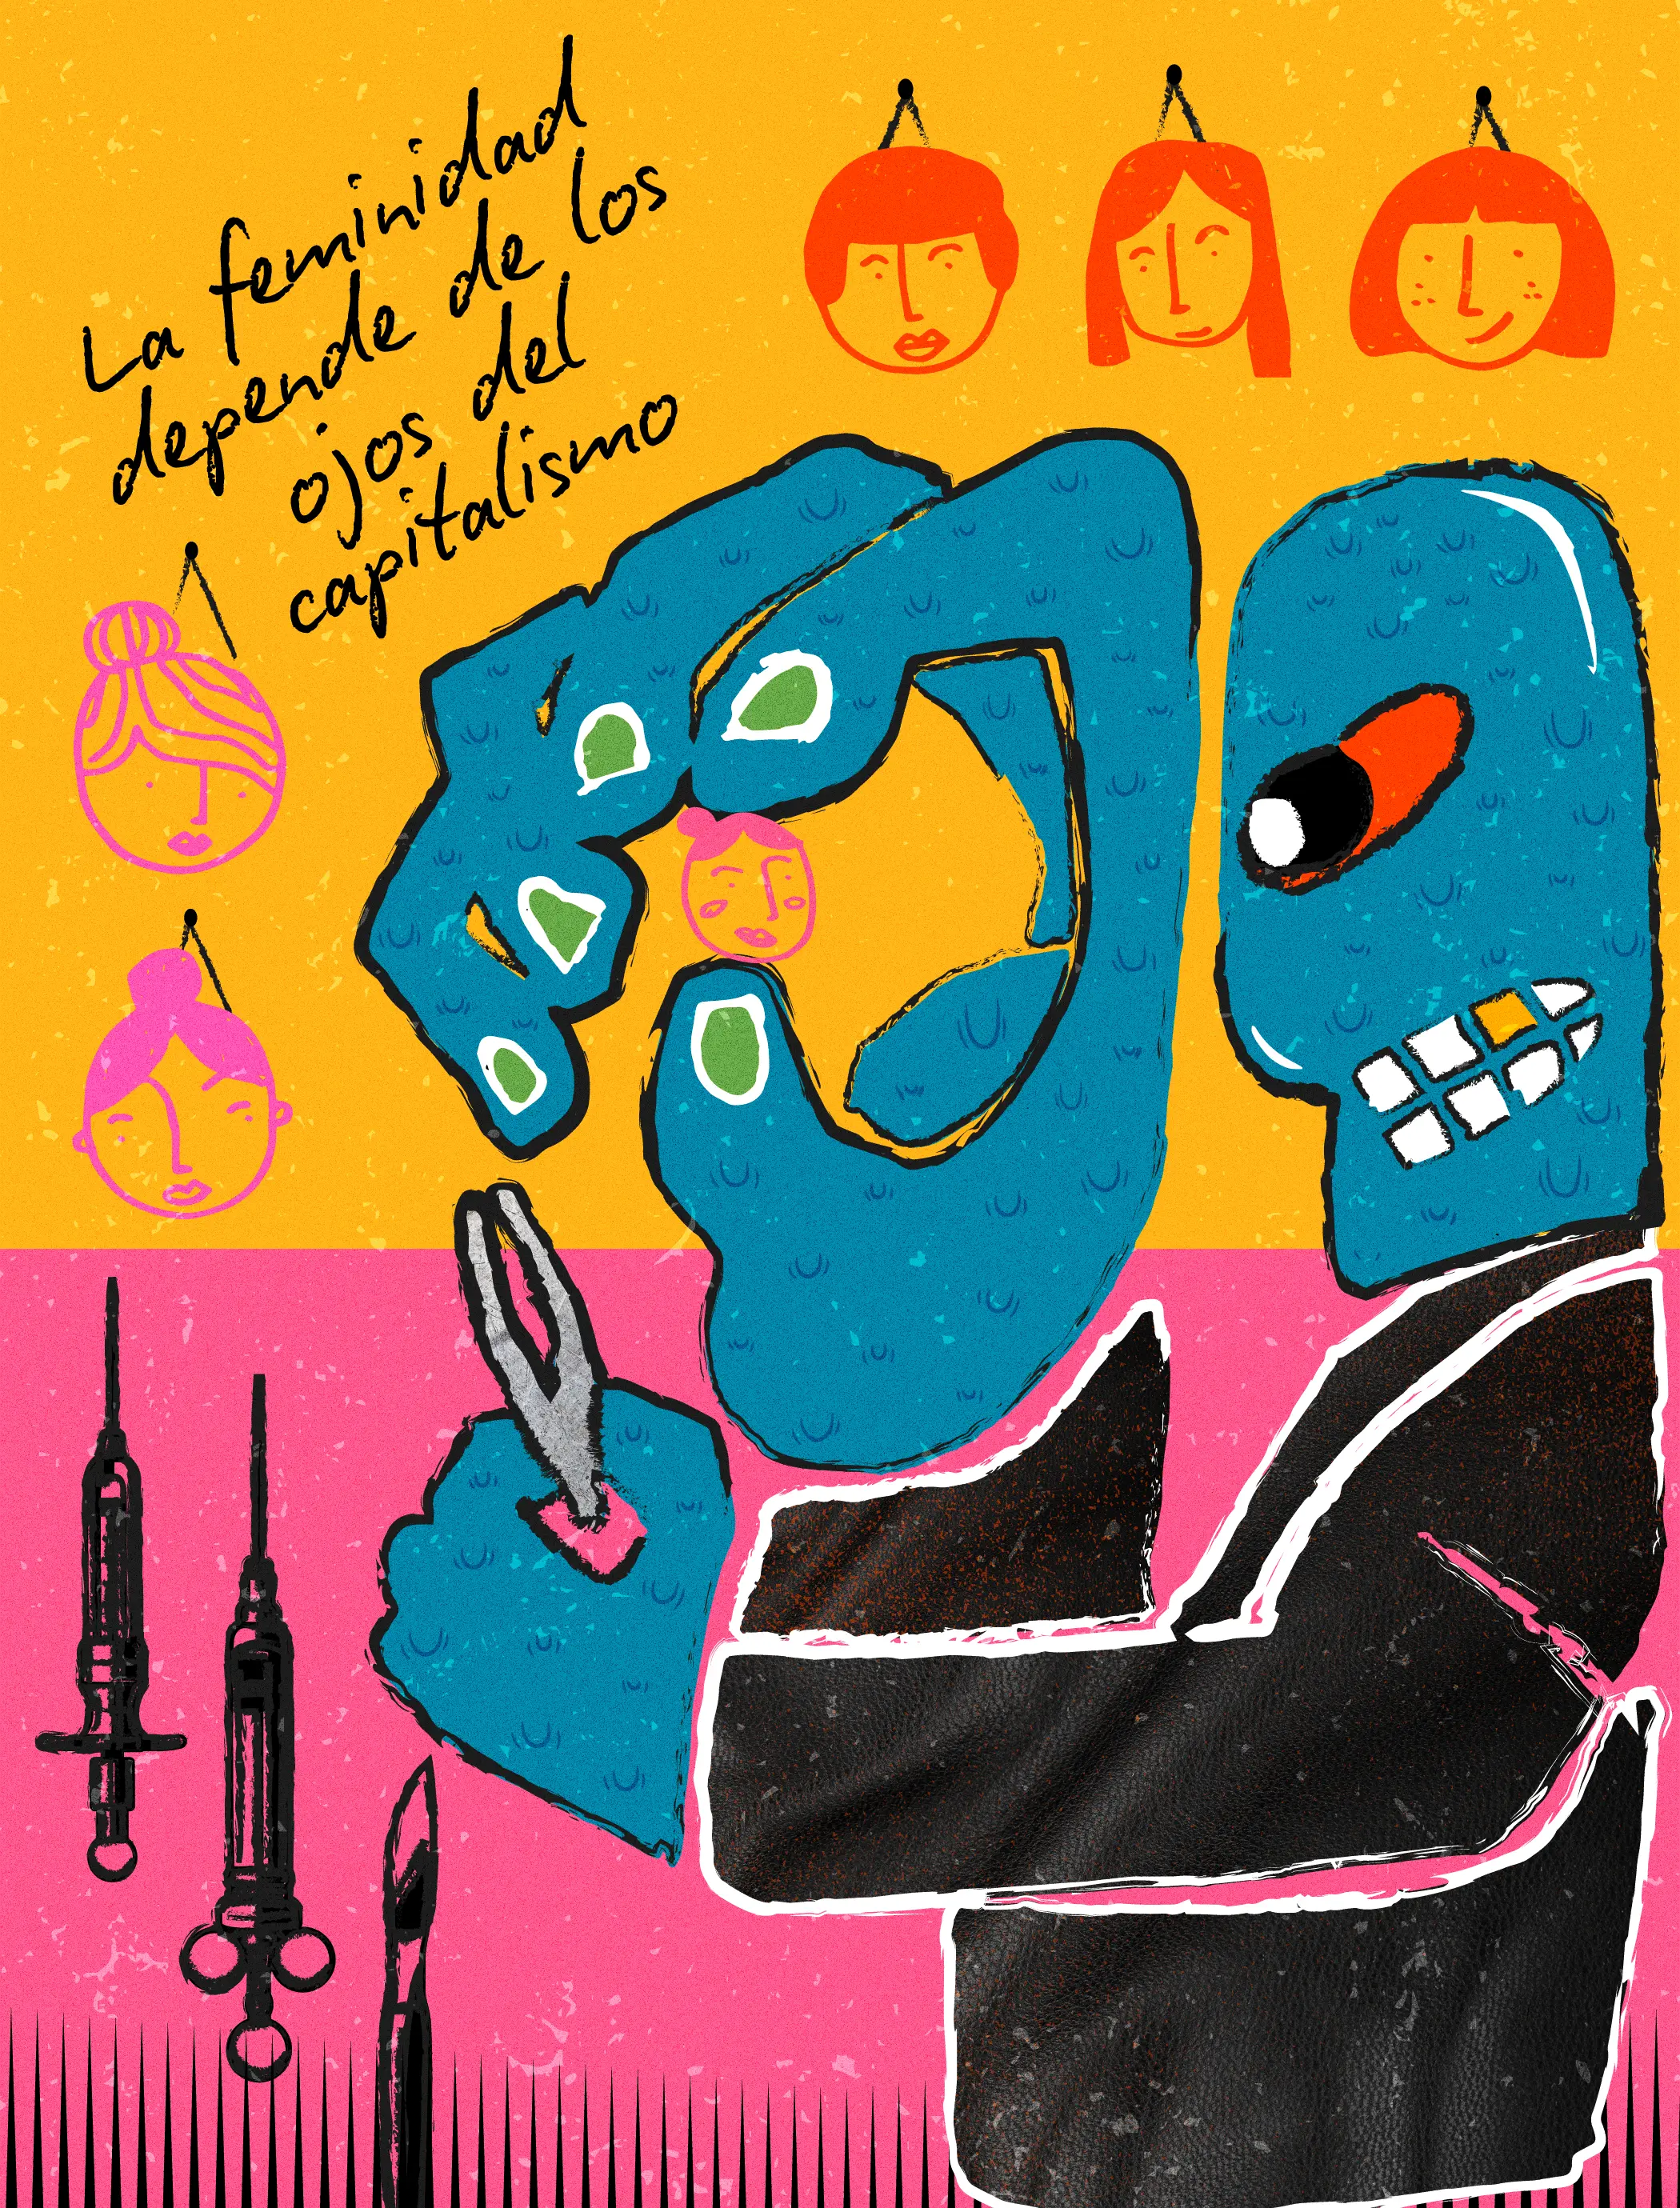 La feminidad
depende de los
ojos del
capitalismo